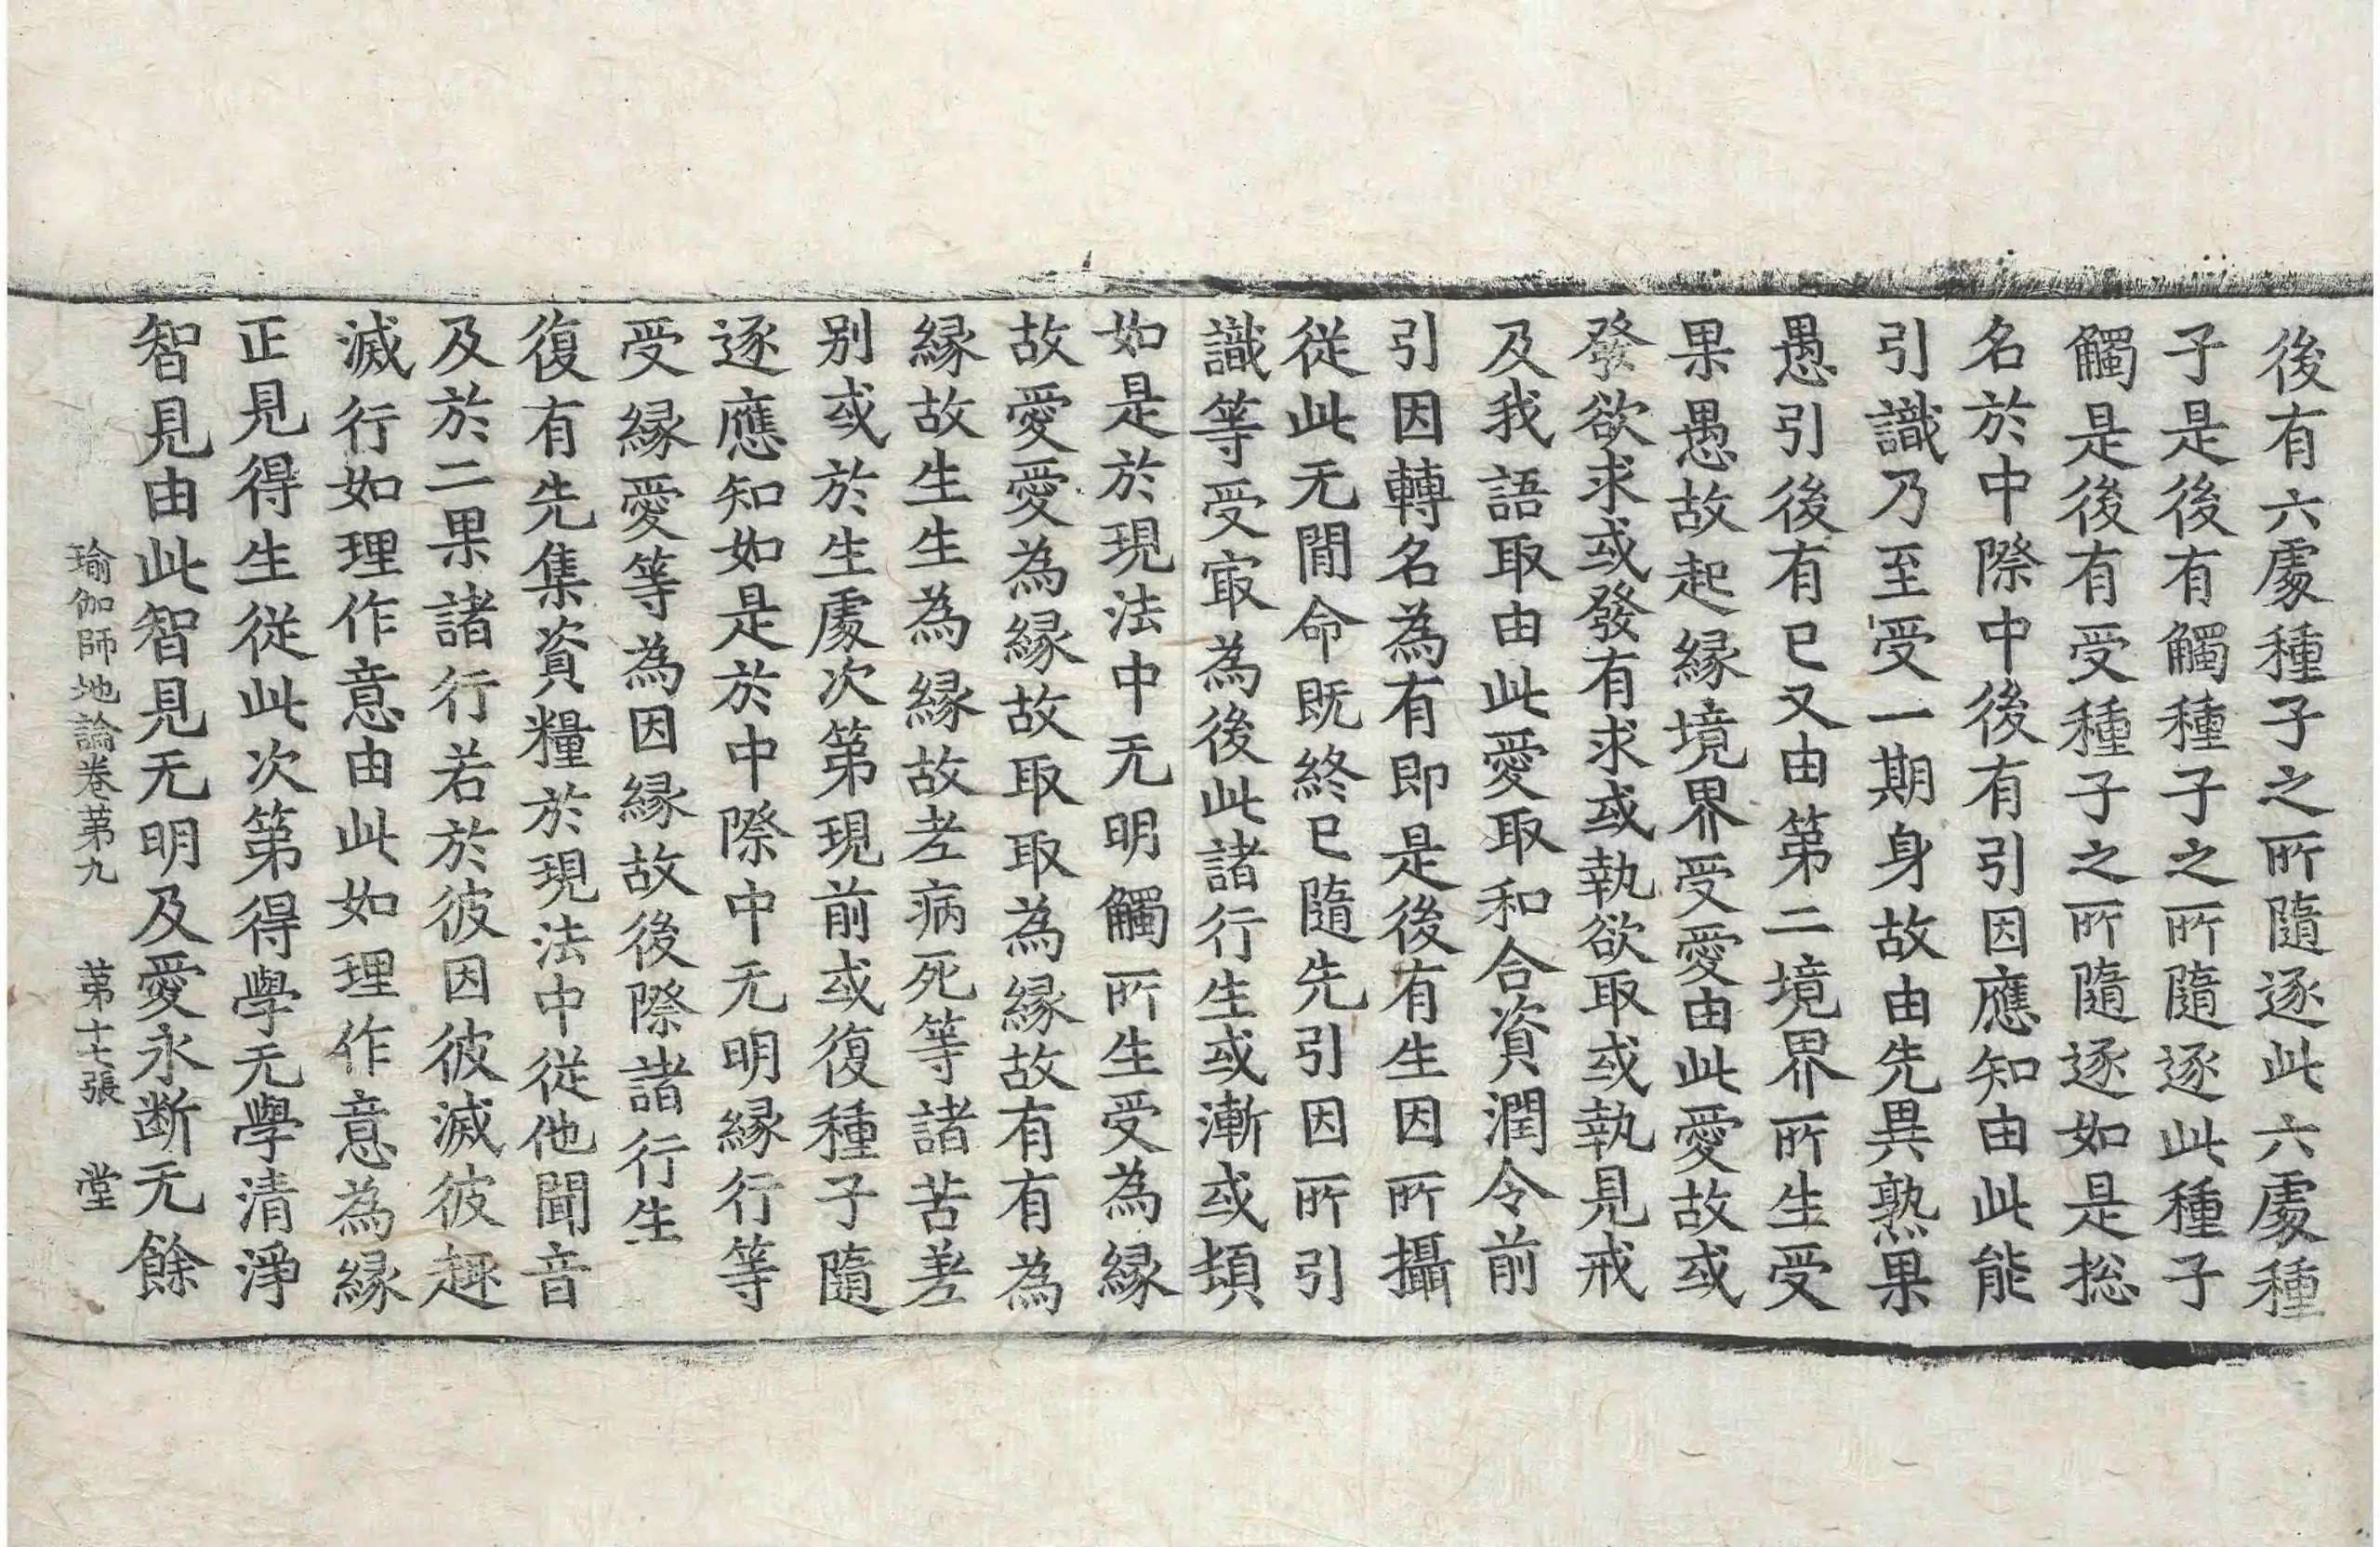 後有六處種子之所隨逐此六處種
子是後有觸種子之所隨逐此種子
觸是後有受種子之所隨逐如是捴
名於中際中後有引因應知由此能
引識乃至受一期身故由先異熟果
愚引後有已又由第二境界所生受
果愚故起縁境界受愛由此愛故或
發欲求或發有求或執欲取或執見戒
及我語取由此愛取和合資潤令前
引因轉名為有即是後有生因所攝
從此无閒命既終已隨先引因所引
識等受㝡為後此諸行生或漸或頓
如是於現法中无明觸所生受為縁
故愛愛為縁故取取為縁故有有為
縁故生生為縁故老病死等諸苦差
别或於生處次第現前或復種子隨
逐應知如是於中際中无明縁行等
受縁愛等為因縁故後際諸行生
復有先集資糧於現法中從他聞音
及於二果諸行若於彼因彼滅彼趣
滅行如理作意由此如理作意為縁
正見得生從此次第得學无學清淨
智見由此智見无明及愛永断无餘
瑜伽師地論卷苐九 苐十七張 堂